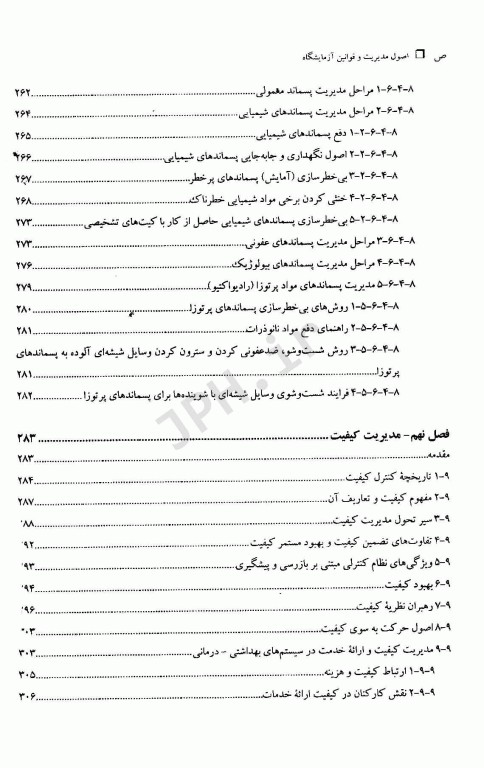 ص ❐ اصول مدیریت و قوانین آزمایشگاه
۸-۴-۶-۱ مراحل مدیریت پسماند معمولی ۲۶۲
۸-۴-۶-۲ مراحل مدیریت پسماندهای شیمیایی ۲۶۴
۸-۴-۶-۲-۱ دفع پسماندهای شیمیایی ۲۶۵
۸-۴-۶-۲-۲ اصول نگهداری و جابه‌جایی پسماندهای شیمیایی ۲۶۶
۸-۴-۶-۲-۳ بی‌خطرسازی (آمایش) پسماندهای پرخطر ۲۶۷
۸-۴-۶-۲-۴ خنثی کردن برخی مواد شیمیایی خطرناک ۲۶۸
۸-۴-۶-۲-۵ بی‌خطرسازی پسماندهای شیمیایی حاصل از کار با کیت‌های تشخیصی ۲۷۳
۸-۴-۶-۳ مراحل مدیریت پسماندهای عفونی ۲۷۳
۸-۴-۶-۴ مراحل مدیریت پسماندهای بیولوژیک ۲۷۶
۸-۴-۶-۵ مدیریت پسماندهای مواد پرتوزا (رادیواکتیو) ۲۷۹
۸-۴-۶-۵-۱ روش‌های بی‌خطرسازی پسماندهای پرتوزا ۲۸۰
۸-۴-۶-۵-۲ راهنمای دفع مواد نانوذرات ۲۸۱
۸-۴-۶-۵-۳ روش شست‌وشو، ضدعفونی کردن و سترون کردن وسایل شیشه‌ای آلوده به پسماندهای
پرتوزا ۲۸۱
۸-۴-۶-۵-۴ فرایند شست‌وشوی وسایل شیشه‌ای با شوینده‌ها برای پسماندهای پرتوزا ۲۸۲
فصل نهم - مدیریت کیفیت ۲۸۳
مقدمه ۲۸۳
۹-۱ تاریخچهٔ کنترل کیفیت ۲۸۴
۹-۲ مفهوم کیفیت و تعاریف آن ۲۸۷
۹-۳ سیر تحول مدیریت کیفیت ۸۸
۹-۴ تفاوت‌های تضمین کیفیت و بهبود مستمر کیفیت ۹۲
۹-۵ ویژگی‌های نظام کنترلی مبتنی بر بازرسی و پیشگیری ۹۳
۹-۶ بهبود کیفیت ۹۴
۹-۷ رهبران نظریهٔ کیفیت ۹۶
۹-۸ اصول حرکت به سوی کیفیت ۰۳
۹-۹ مدیریت کیفیت و ارائهٔ خدمت در سیستم‌های بهداشتی - درمانی ۳۰۳
۹-۹-۱ ارتباط کیفیت و هزینه ۳۰۵
۹-۹-۲ نقش کارکنان در کیفیت ارائهٔ خدمات ۳۰۶
JPH.ir